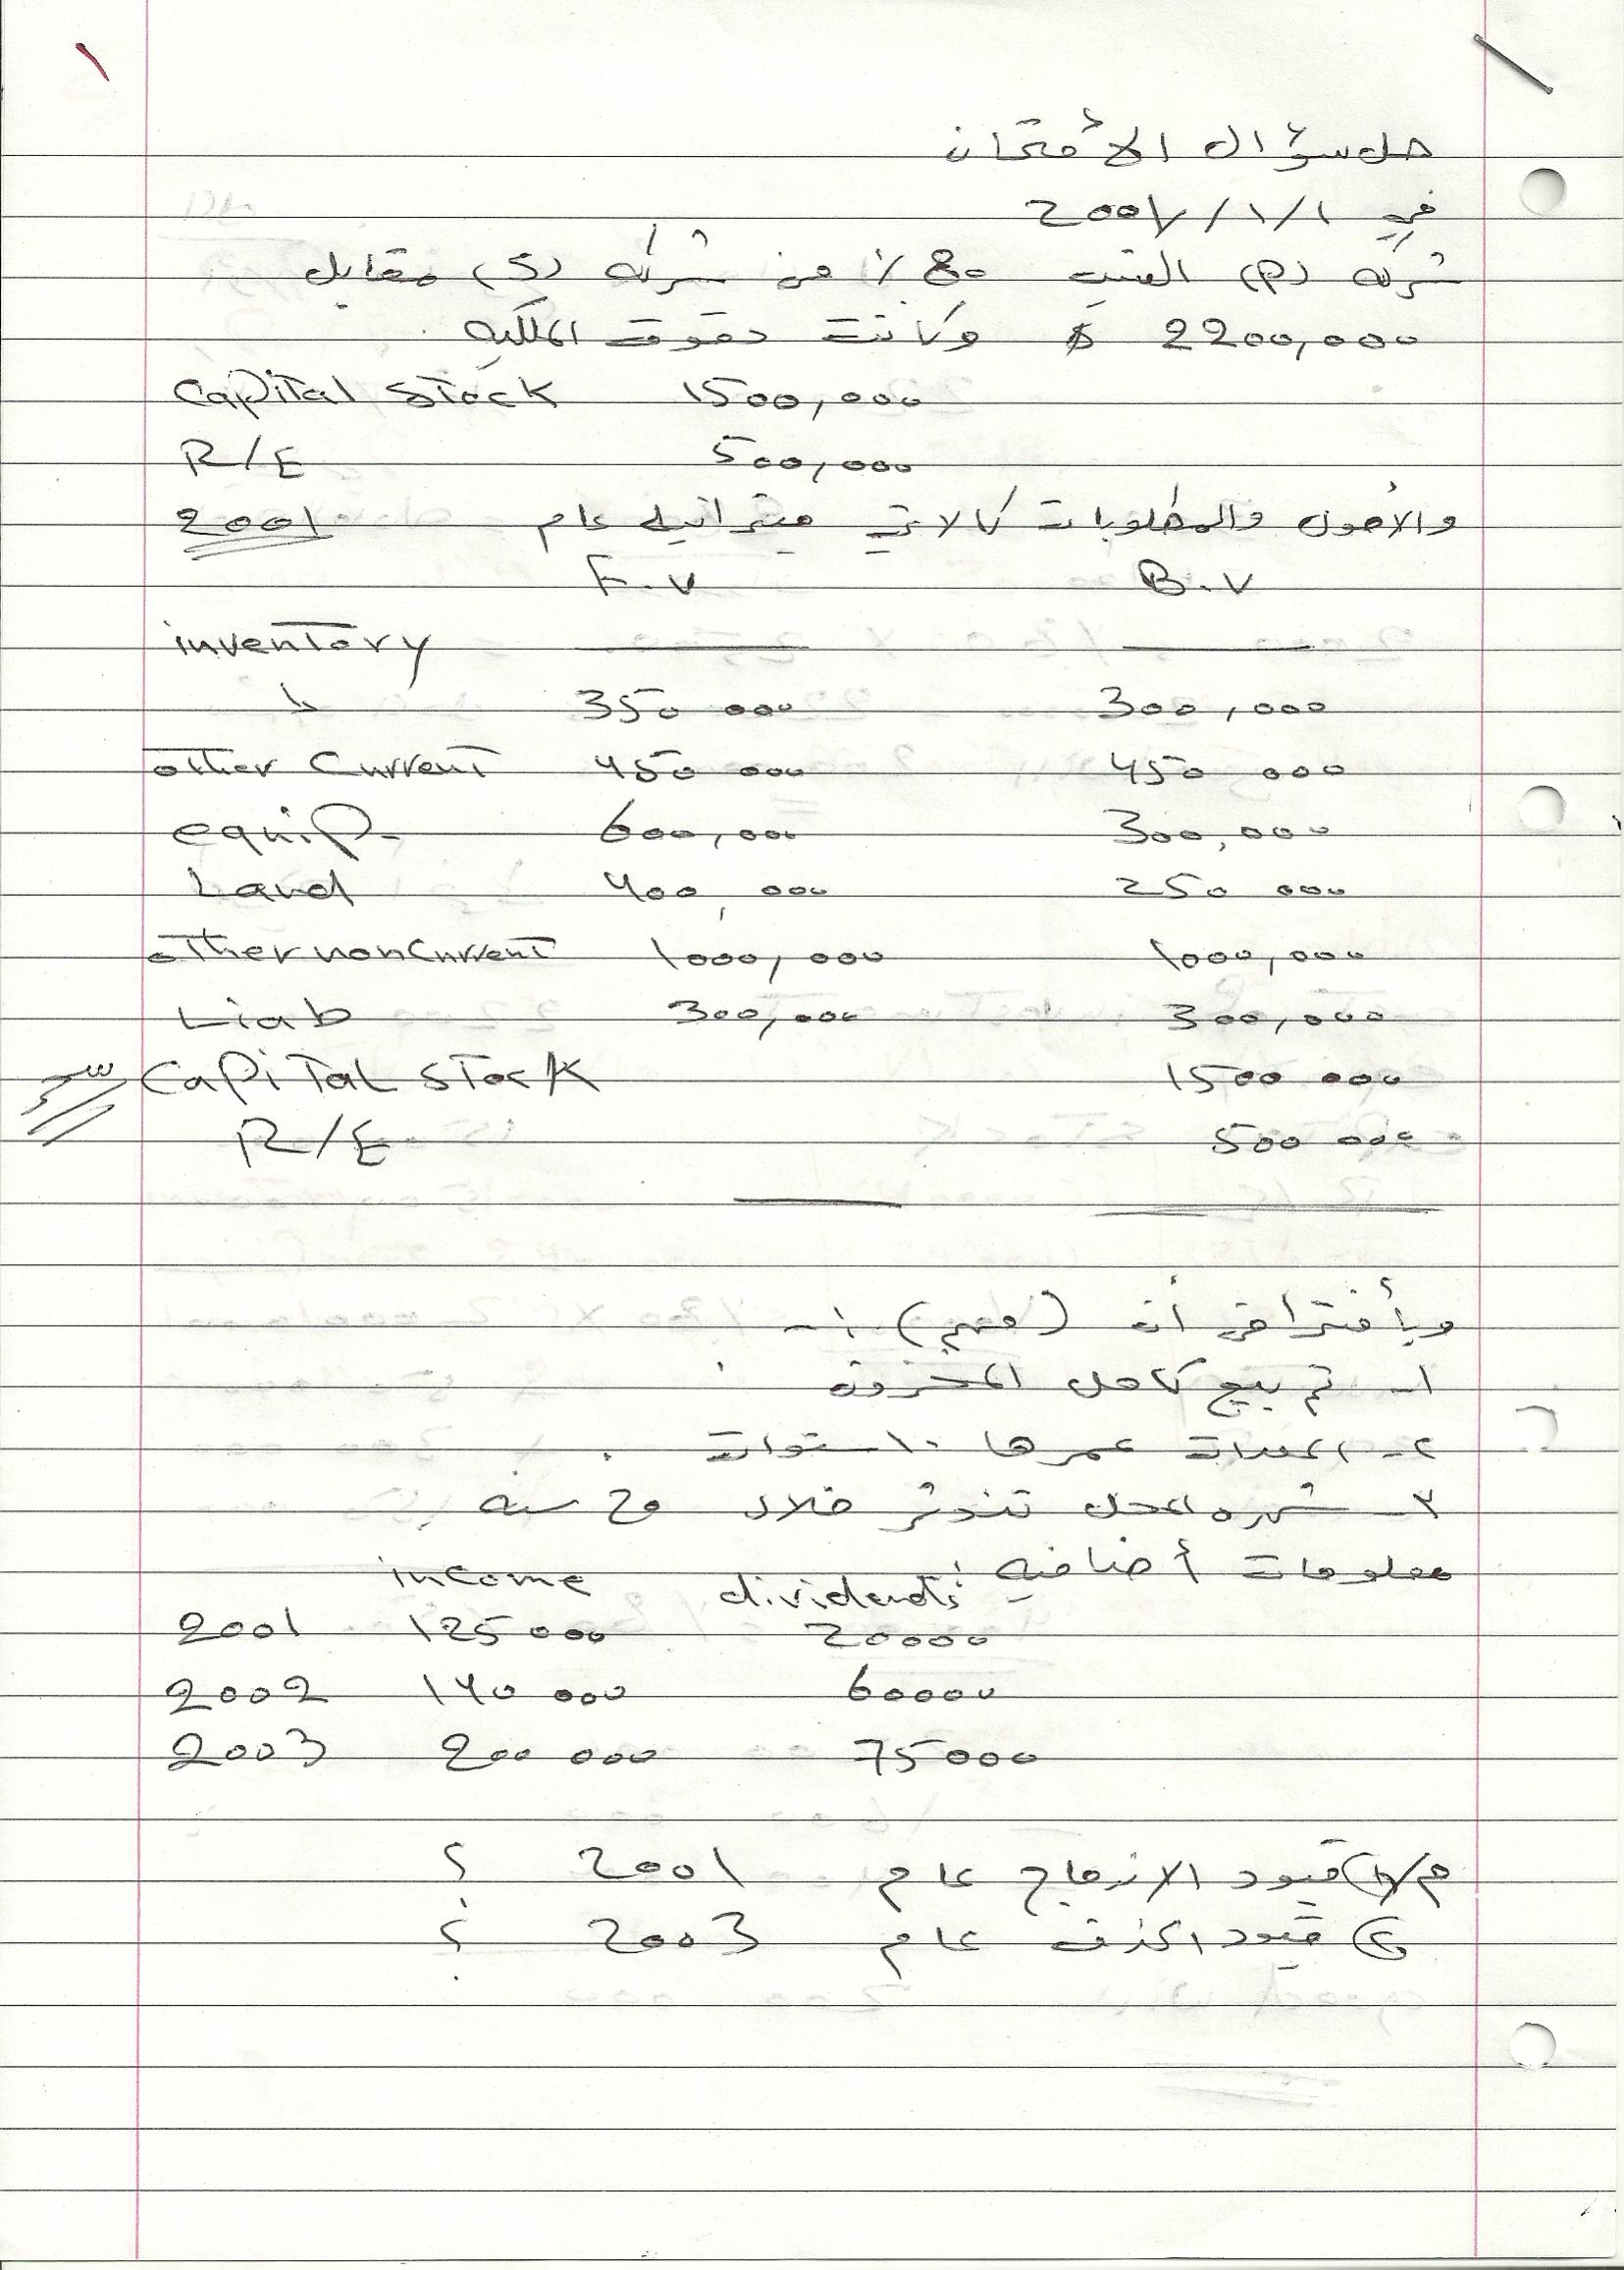 حل سؤال الأمتحان
في 2001/1/1
شركة (P) اقتنت 80٪ من شركة (S) مقابل
2200,000 $ وكانت حقوق الملكيه
Capital Stock 1500,000
R/E 500,000
والأصول والمطلوبات كالاتي ميزانية عام 2001
F.V B.V
inventory
350 000 300,000
other Current 450 000 450 000
equip. 600,000 300,000
Land 400,000 250 000
other nonCurrent 1000,000 1000,000
Liab 300,000 300,000
Capital Stock 1500 000
R/E 500 000
وبأفتراض أن (مهم) :-
1- تم بيع كامل المخزون
2- المعدات عمرها 10 سنوات .
3- شهره المحل خلال سنه
معلومات أضافيه :
income dividends
2001 125 000 20000
2002 140 000 60000
2003 200 000 75000
م/ 1) قيود الاندماج عام 2001 ؟
2) قيود الحذف عام 2003 ؟